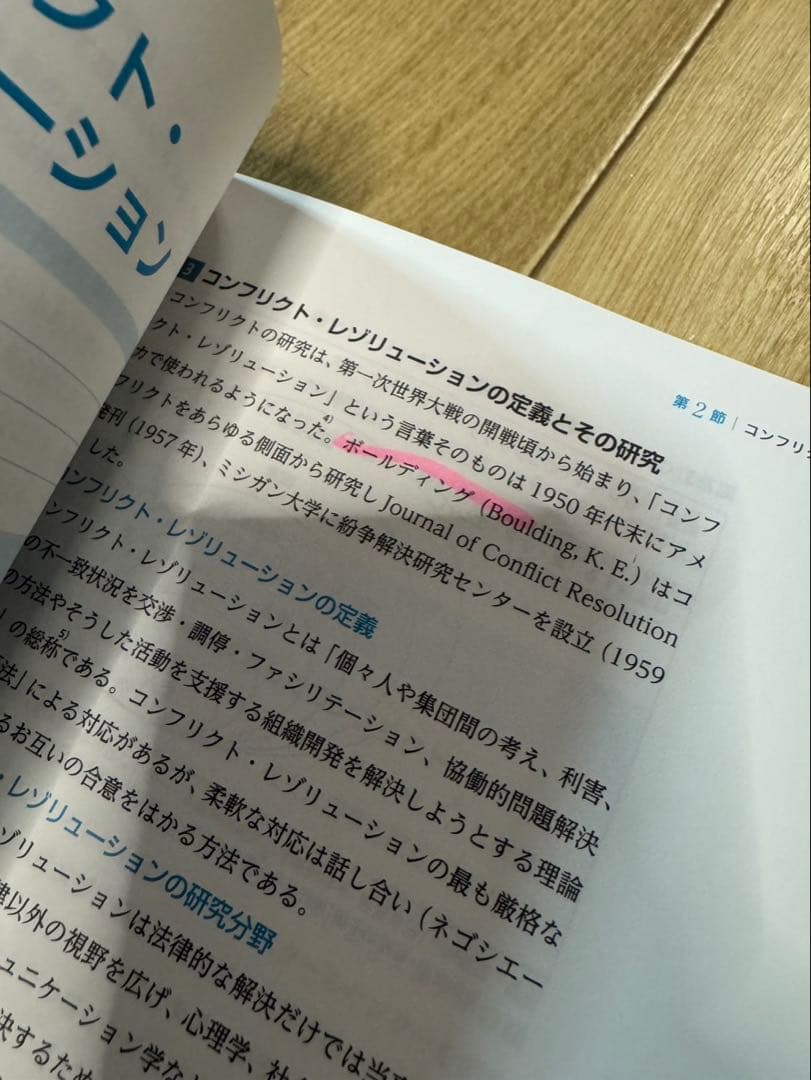 クト・
ーション
第2節｜コンフリ
3 コンフリクト・レゾリューションの定義とその研究
コンフリクトの研究は、第一次世界大戦の開戦頃から始まり、「コンフ
クト・レゾリューション」という言葉そのものは1950年代末にアメ
カで使われるようになった。4) ボールディング (Boulding, K. E.) はコ
フリクトをあらゆる側面から研究し Journal of Conflict Resolution
発刊 (1957年)、ミシガン大学に紛争解決研究センターを設立 (1959
した。
ンフリクト・レゾリューションの定義
ンフリクト・レゾリューションとは「個々人や集団間の考え、利害、
の不一致状況を交渉・調停・ファシリテーション、協働的問題解決
の方法やそうした活動を支援する組織開発を解決しようとする理論
」の総称である。5) コンフリクト・レゾリューションの最も厳格な
法」による対応があるが、柔軟な対応は話し合い (ネゴシエー
るお互いの合意をはかる方法である。
・レゾリューションの研究分野
ゾリューションは法律的な解決だけでは当
律以外の視野を広げ、心理学、社
ュニケーション学な
決するため